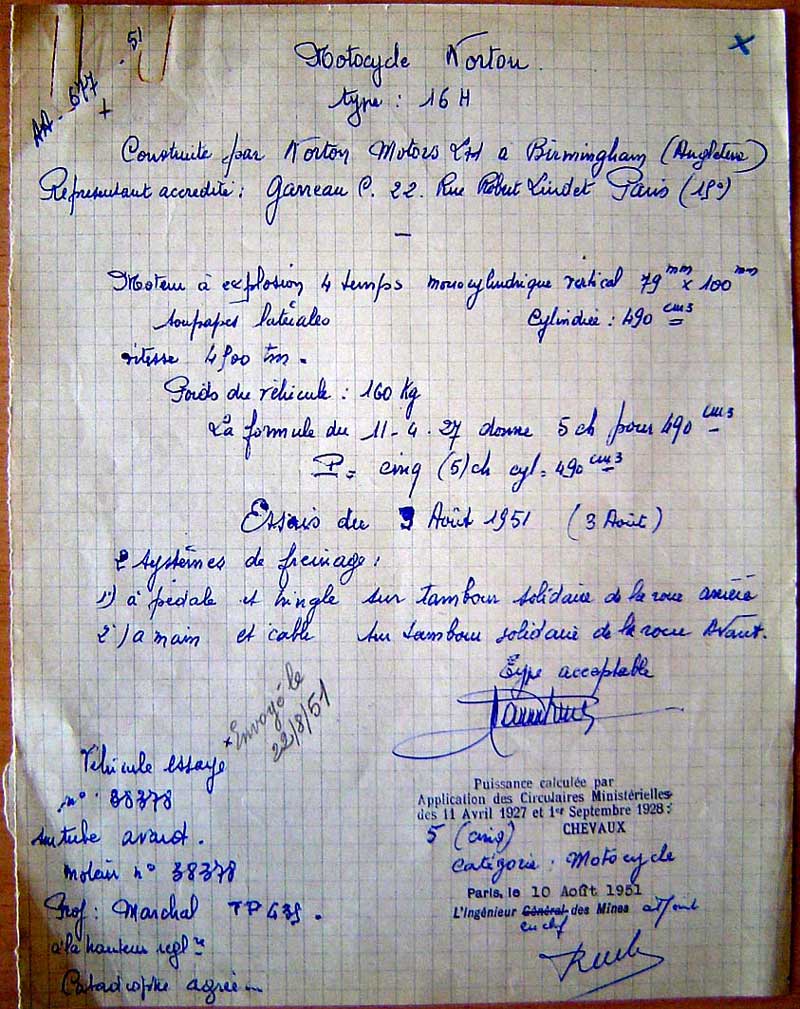 AA - 677 - 51
x
Motocycle Norton.
type : 16 H
Construite par Norton Motors Ltd à Birmingham (Angleterre)
Représentant accrédité : Garreau C. 22. Rue Robert Lindet Paris (15°)
—
Moteur à explosion 4 temps monocylindrique vertical 79 mm x 100 mm
soupapes latérales Cylindrée : 490 cm3
vitesse 4500 tm.
Poids du véhicule : 160 Kg
La formule du 11-4.27 donne 5 ch pour 490 cm3
P = cinq (5) ch cyl = 490 cm3
Essais du 3 Août 1951 (3 Août)
2 systèmes de freinage :
1°) à pédale et tringle sur tambour solidaire de la roue arrière
2°) a main et cable sur tambour solidaire de la roue Avant.
Type acceptable
x Envoyé le
22/8/51
Véhicule essayé
n° 38378
sur tube avant.
moteur n° 38378
Proj : Marchal TP 435.
à la hauteur reglre
Catadioptre agréé
Puissance calculée par
Application des Circulaires Ministérielles
des 11 Avril 1927 et 1er Septembre 1928 :
5 (cinq) CHEVAUX
Catégorie : Motocycle
Paris, le 10 Août 1951
L'Ingénieur Général des Mines adjoint
en chef